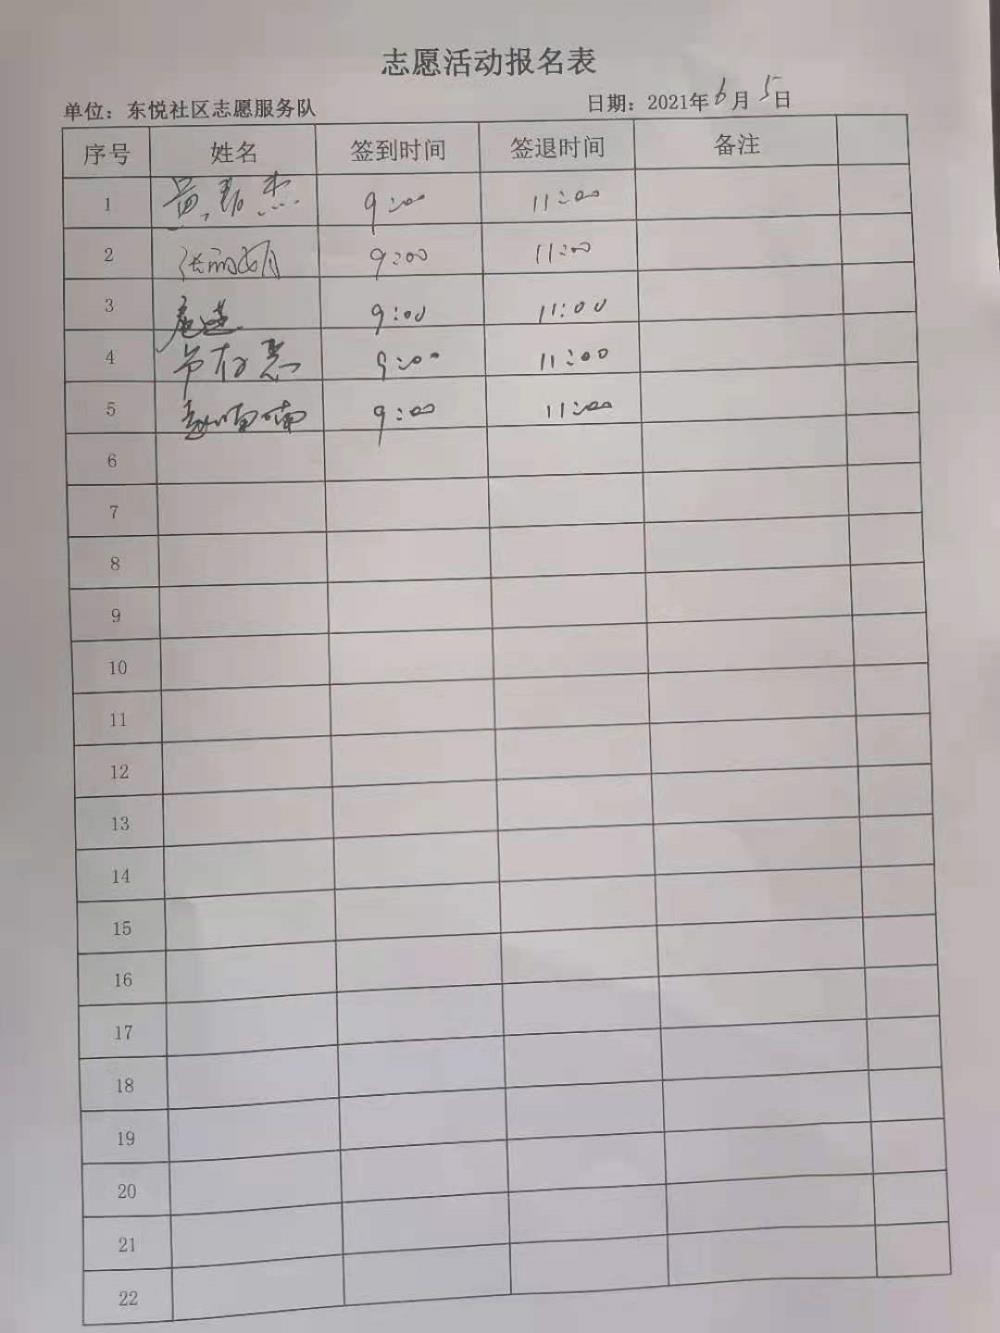 志愿活动报名表
单位：东悦社区志愿服务队 日期：2021年6月5日
序号 姓名 签到时间 签退时间 备注
1 9:00 11:00
2 张丽娟 9:00 11:00
3 9:00 11:00
4 9:00 11:00
5 赵喃喃 9:00 11:00
6
7
8
9
10
11
12
13
14
15
16
17
18
19
20
21
22